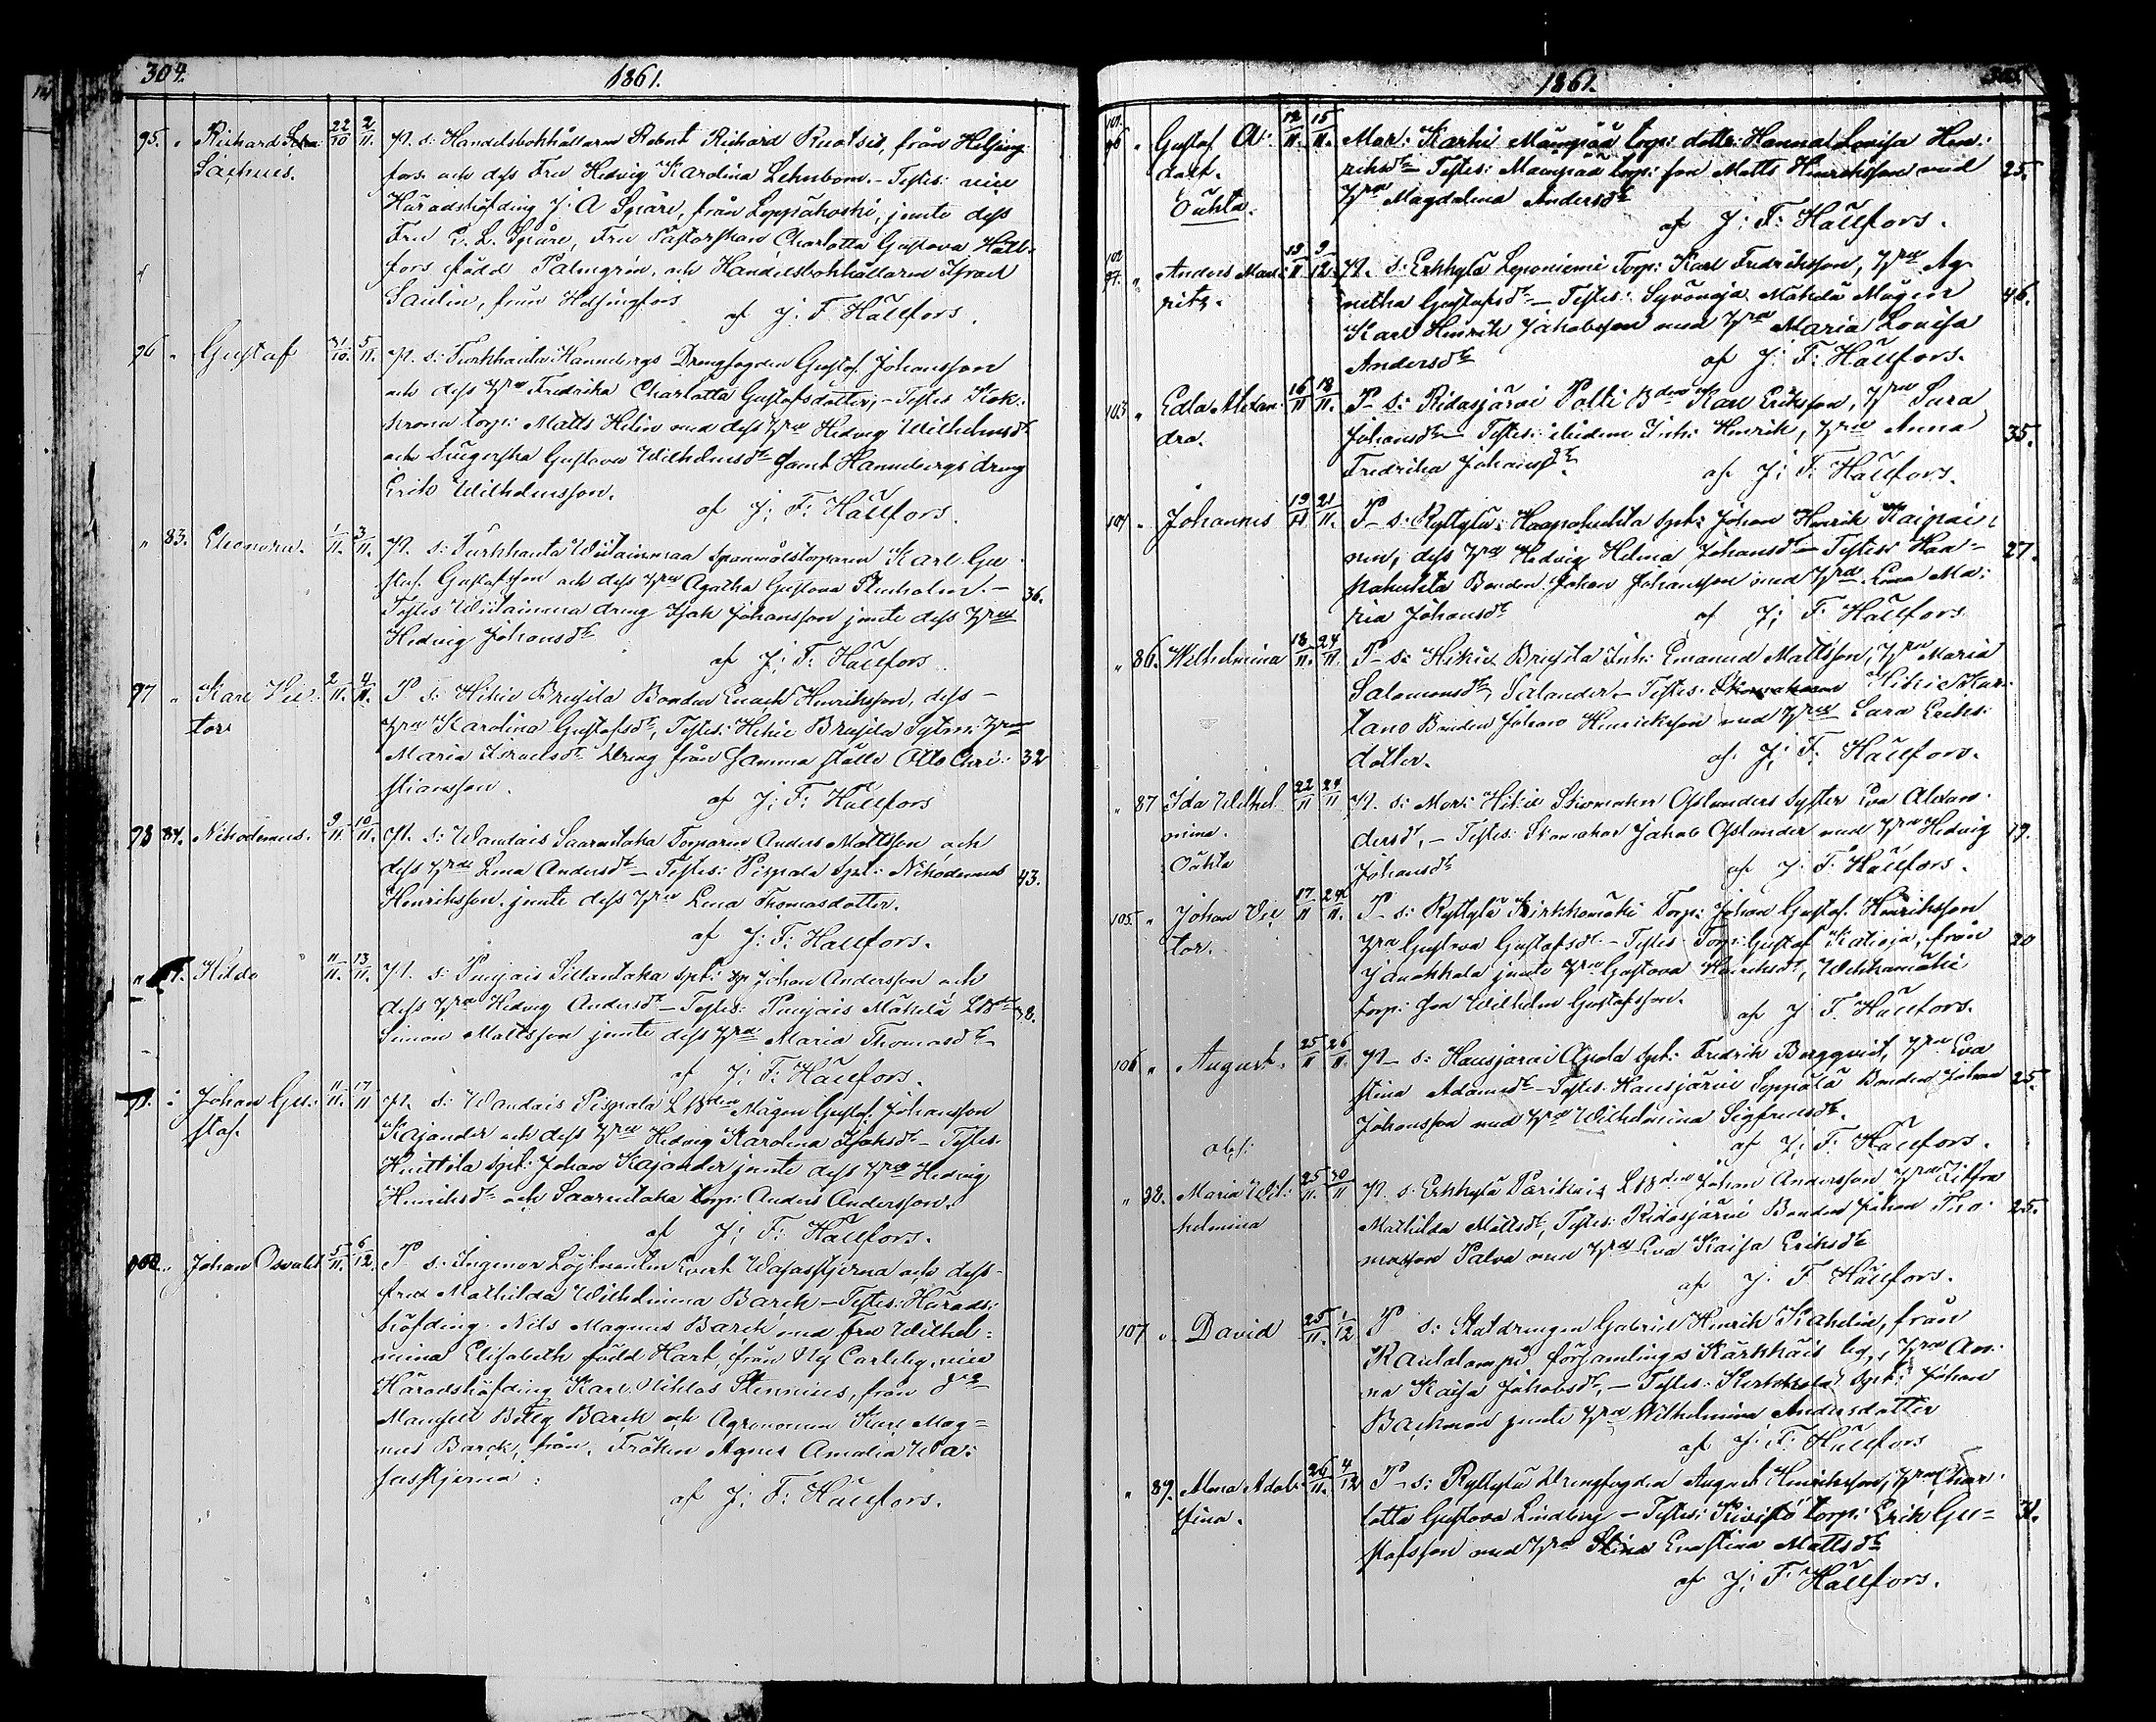 304.
1861.
95. " Richard 22/10 2/11. P. s: Handelsbokhållaren Robert Richard Ruatsis, från Helsing-
Sachues. fors och dess Fru Hedvig Karolina Lehnbom. - Testes: vice
Häradshöfding J: A Spåre, från Leppäkoski, jemte dess
Fru E. L. Spåre, Fru Pastorskan Charlotta Gustava Häll-
fors född Palmgrén, och Handelsbokhållaren Israel
Saulin, från Helsingfors
af J: F. Hällfors.
96 " Gustaf 31/10. 5/11. P. s: Turkhauta Hannebergs Drengfogden Gustaf Johansson
och dess hru Fredrika Charlotta Gustafsdotter, - Testes
torp: Matts Helin med dess hru Hedvig Wilhelmsdr
och Gustava Wilhelmsdr samt Hannebergs dreng
Erik Wilhelmsson.
af J: F: Hällfors.
" 83. Eleonora. 1/11. 3/11. P. s: Turkhauta Wiitainmaa Spanmålstorparen Karl Gu-
staf Gustafsson och dess hru Agatha Gustava Stenholm. - 36.
Testes Wiitainmaa dreng Isak Johansson jemte dess hru
Hedvig Johansdr
af J: F: Hällfors
97 " Karl Vic- 2/11. 4/11. P s: Hikiä Brusila Bonden Enoch Henriksson, dess
tor hru Karolina Gustafsdr, Testes: Hikiä Brusila Sytn: hru
Maria Israelsdr Dreng från samma ställe Otto Chri- 32
stiansson.
af J: F: Hällfors
98 84. Nikodemus. 9/11. 10/11. P. s: Wantais Saarentaka Torparen Anders Mattsson och
dess hru Lena Andersdr - Testes: Pispala Spt: Nikodemus 43.
Henriksson jemte dess hru Lena Thomasdotter.
af J: F: Hällfors.
" Hilda 11/11. 13/11. P. s: Puujais Sillantaka Spt: Johan Andersson och
dess hru Hedvig Andersdr - Testes: Puujais Mäkelä 38.
Simon Mattsson jemte dess hru Maria Thomasdr
af J: F: Hällfors.
Johan Gu- 11/11. 17/11 P. s: Wantais Pispala Mågen Gustaf Johansson
staf. Kajander och dess hru Hedvig Karolina Isaksdr - Testes.
Huittila Spt: Johan Kajander jemte dess hru Hedvig
Henriksdr och Saarentaka torp: Anders Andersson.
af J: F: Hällfors.
100. " Johan Osvald 5/11. 6/12. P s: Ingenior Löjtnanten Evert Wasastjerna och dess
fru Mathilda Wilhelmina Barck - Testes: Härads-
höfding Nils Magnus Barck med fru Wilhel-
mina Elisabeth född Hart, från Ny Carleby, vice
Häradshöfding Karl Niklas Stenius, från
Mamsell Barck och Agronomen Karl Mag-
nus Barck, från, Fröken Agnes Amalia Wa-
sastjerna:
af J: F: Hällfors.
1861.
101.
98 " Gustaf A- 12/11. 15/11. Mor: Karhi Mäenpää torp: dotter Hanna Lovisa Hen-
dolf. riksdr - Testes: Mäenpää torp: son Matts Henriksson med 25.
Oäkta. hru Magdalena Andersdr
af J: F: Hällfors.
102
97. " Anders Mau- 13/11 9/12. P. s: Erkkylä Leponiemi Torp: Karl Fredriksson, hru Ag-
ritz. netha Gustafsdr - Testes: Syvänoja Mäkelä Mågen 46.
Karl Henrik Jakobsson med hru Maria Lovisa
Andersdr af J: F: Hällfors.
103 " Edla Alexan- 16/11 18/11. P s: Ridasjärvi Palli Karl Eriksson, hru Sara
dra. Johansdr - Testes: ibidem Inh: Henrik, hru Anna 35.
Fredrika Johansdr. af J: F: Hällfors.
104 " Johannes 19/11 21/11. P s: Ryttylä Haapahuhta Spt: Johan Henrik Kaipai-
nen, dess hru Hedvig Helena Johansdr - Testes Haa- 27.
pahuhta Bonden Johan Johansson med hru Lena Ma-
ria Johansdr af J: F: Hällfors.
" 86. Wilhelmina 18/11. 24/11. P s: Hikiä Brusila Inh: Emanuel Mattsson, hru Maria
Salomonsdr Salander - Testes: Hikiä
Bonden Johan Henriksson med hru Sara Eriks-
dotter. af J: F: Hällfors.
" 87 Ida Wilhel- 22/11 24/11 P. s: Mor: Hikiä Skomakar Oslanders syster Eva Alexan-
mina. dersdr, - Testes: Skomakar Jakob Oslander med hru Hedvig 19.
Oäkta Johansdr af J: F: Hällfors.
105. " Johan Vic- 17/11 24/11. P s: Ryttylä Kirkkomäki Torp: Johan Gustaf Henriksson
tor. hru Gustava Gustafsdr - Testes Torp: Gustaf Katioja, från 20
Janakkala jemte hru Gustava Henriksdr,
torp: son Wilhelm Gustafsson. af J: F: Hällfors.
106 " August. 25/11 26/11. P - s: Hausjärvi Spt: Fredrik Bergqvist, hru Eva
Stina Adamsdr - Testes: Hausjärvi Seppälä Bonden Johan 25.
Johansson med hru Wilhelmina Sigfredsdr.
abs: af J: F: Hällfors.
" 88. Maria Wil- 25/11. 30/11 P. s. Erkkylä Parikais Johan Andersson hru
helmina Mathilda Mattsdr, Testes: Ridasjärvi Bonden Johan Tho- 25.
masson Palva med hru Eva Kaisa Eriksdr
af J: F Hällfors.
107 " David 25/11. 1/12 P s: Statdrengen Gabriel Henrik Kahelin, från
Rautalampi församlings Kärkkäis by, hru An-
na Kaisa Jakobsdr, - Testes: Spt: Johan
Backman jemte hru Wilhelmina Andersdotter
af J: F: Hällfors
" 89. Alma Adol- 26/11. 4/12 P - s: Ryttylä Drengfogden August Henriksson, hru Char-
fina. lotta Gustava Lindberg - Testes: Kivistö torp: Erik Gu- 31.
stafsson med hru Evastina Mattsdr
af J: F: Hällfors.